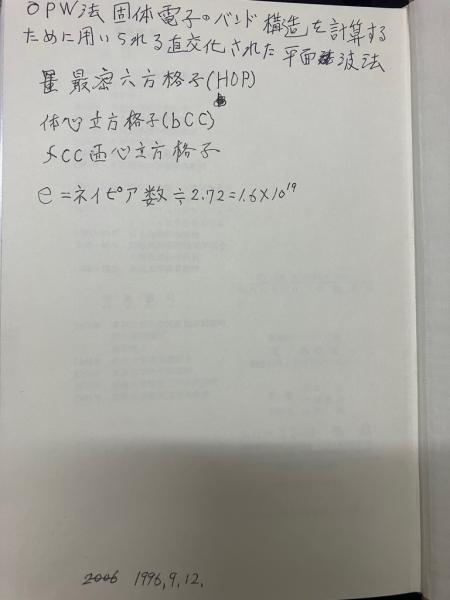 OPW法 固体電子のバンド構造を計算する
ために用いられる直交化された平面波法
最密六方格子(HOP)
体心立方格子(bCC)
fCC面心立方格子
e=ネイピア数≒2.72=1.6×10¹⁹
2006 1996,9,12,